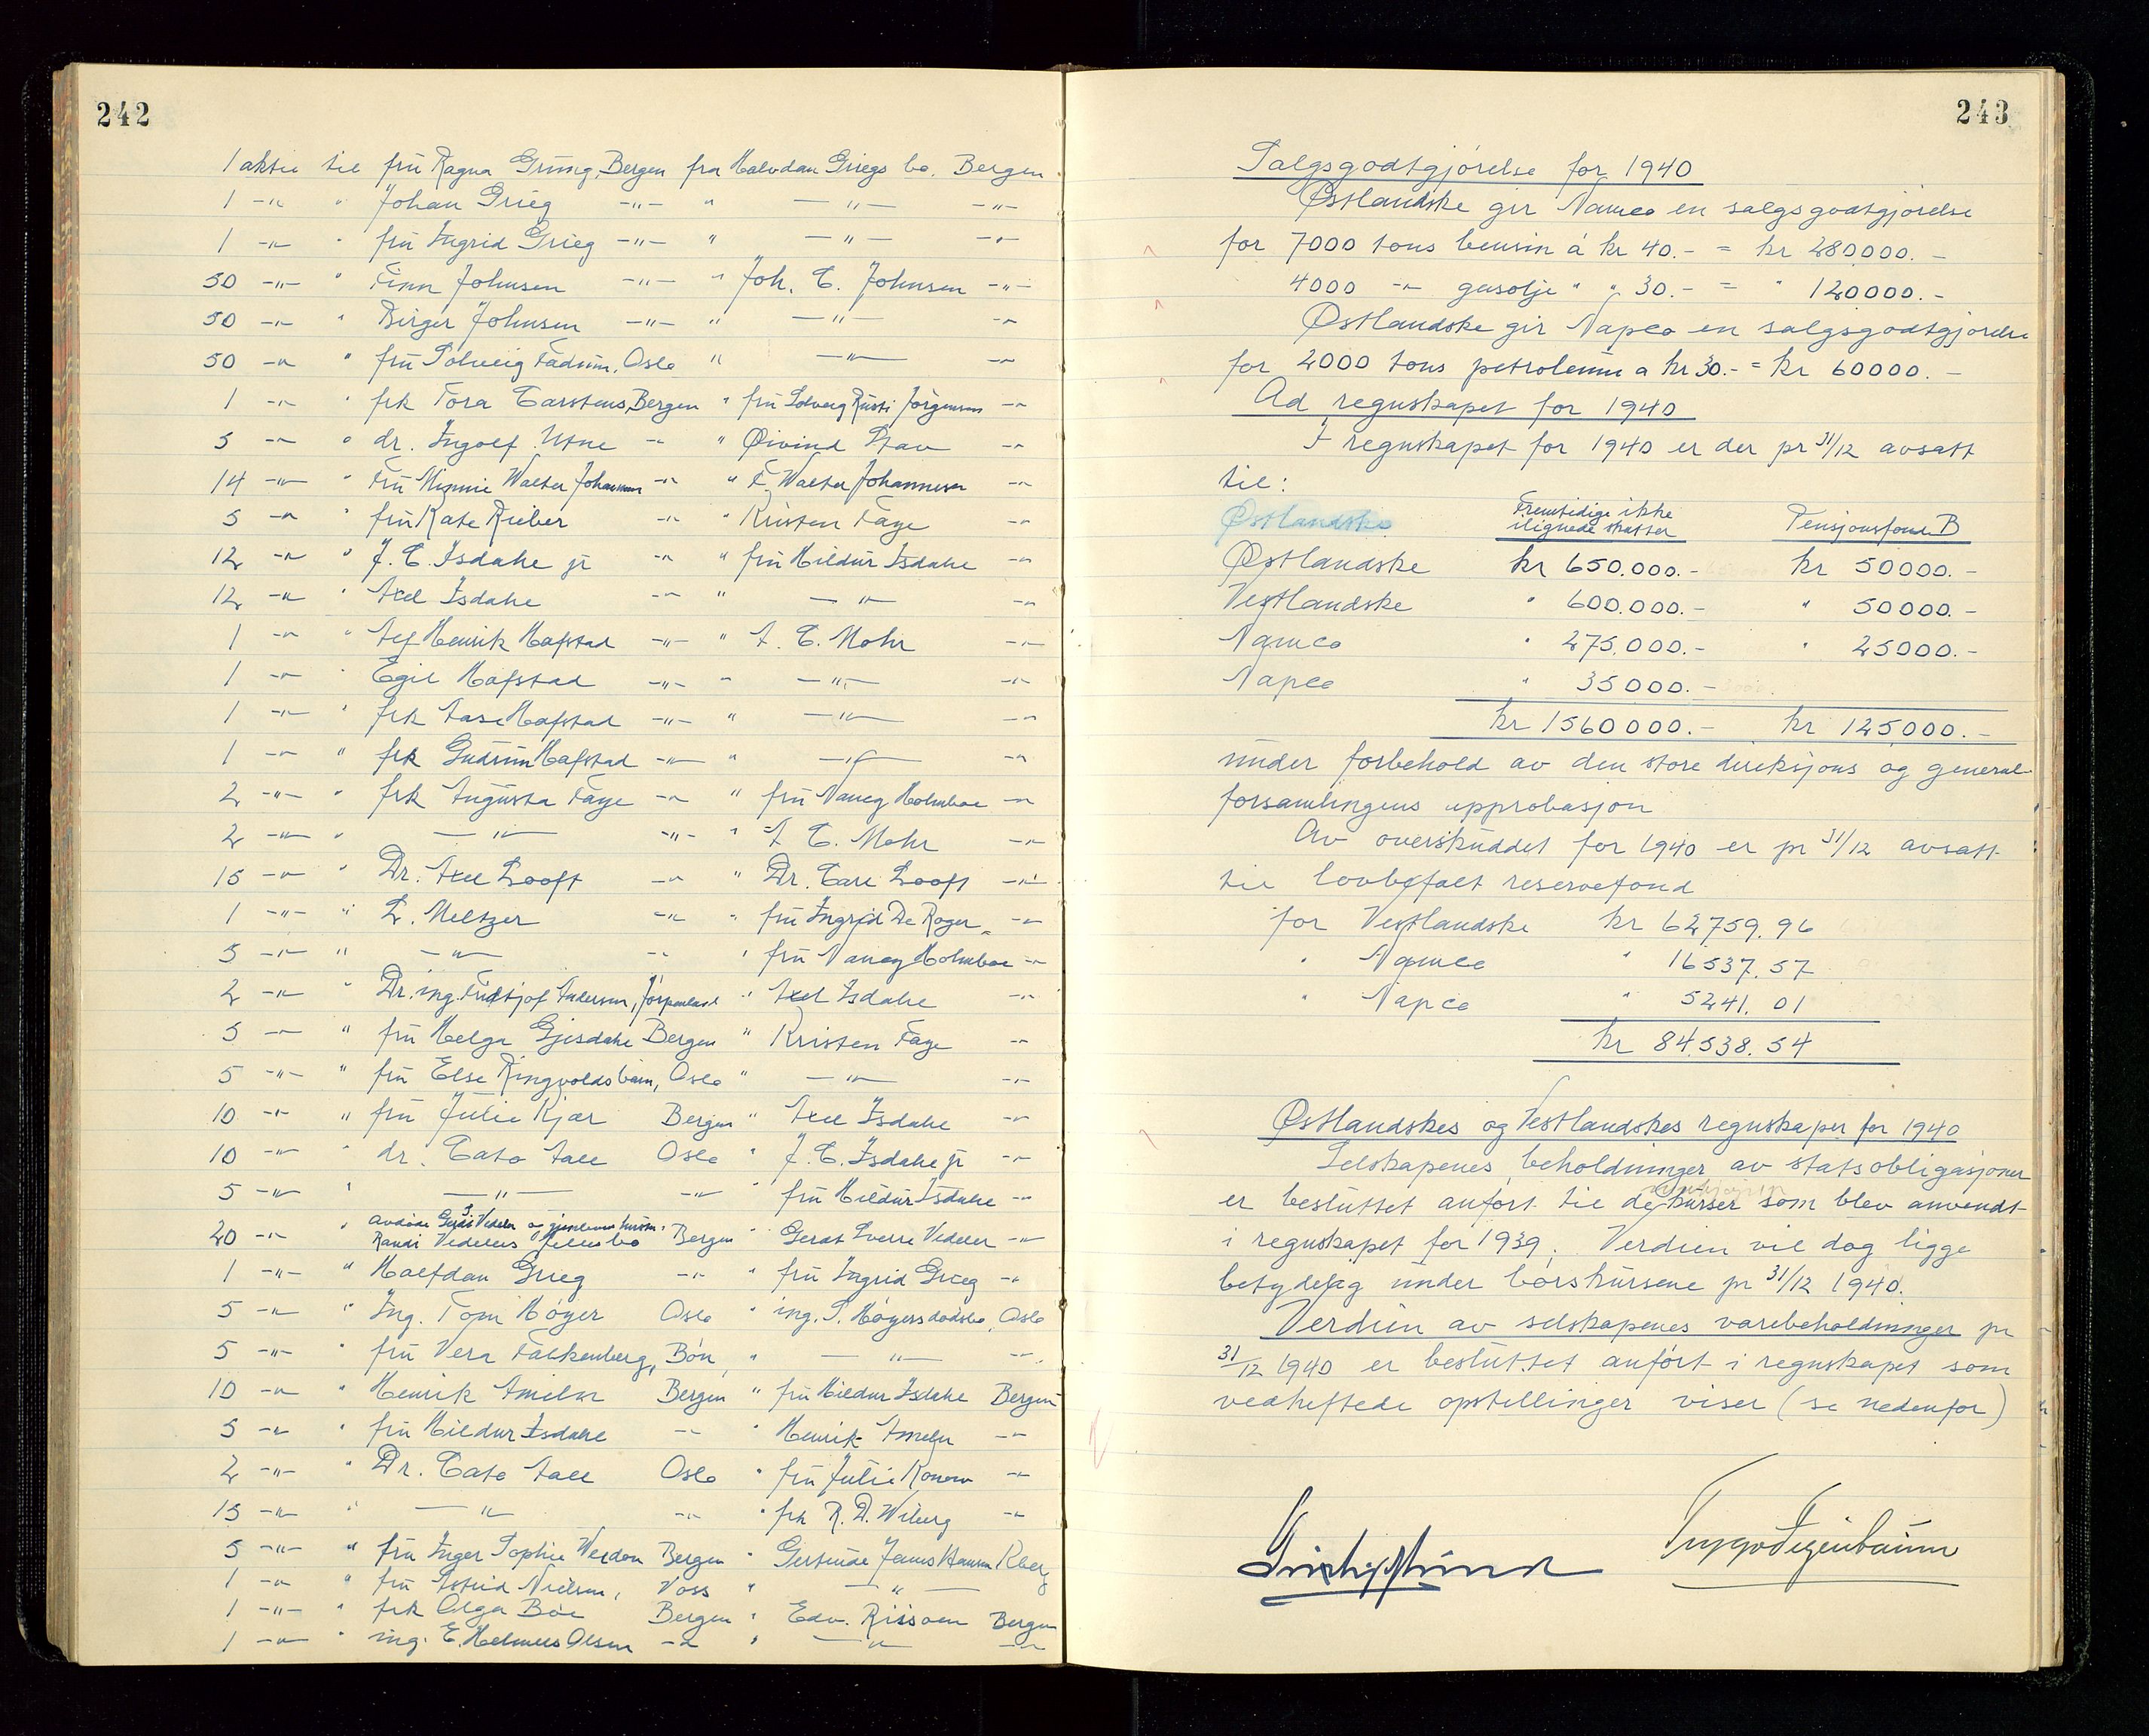 242
1 aktie til frü Ragna Grung, Bergen fra Halvdan Griegs bo. Bergen
1 -"- " Johan Grieg -"- " -"- -"-
1 -"- " frü Ingrid Grieg -"- " -"- -"-
50 -"- " Finn Johnsen -"- " Joh. C. Johnsen -"-
50 -"- " Birger Johnsen -"- " -"- -"-
50 -"- " frü Solveig Fadum, Oslo " -"- -"-
1 -"- " frk Tora Carstens, Bergen " frü Solveig Rusti Jørgensen -"-
5 -"- " dr. Ingolf Utne -"- " Øivind Stav -"-
14 -"- " Frü Minnie Walter Johannesen -"- " F. Walter Johannesen -"-
5 -"- " frü Kate Rieber -"- " Kristen Faye -"-
12 -"- " J. C. Isdahl jr -"- " frü Hildur Isdahl -"-
12 -"- " Axel Isdahl -"- " -"- -"-
1 -"- " Alf Henrik Hafstad -"- " A. C. Mohr -"-
1 -"- " Egil Hafstad -"- " -"- -"-
1 -"- " frk Aase Hafstad -"- " -"- -"-
1 -"- " frk Gudrün Hafstad -"- " -"- -"-
2 -"- " frk Augusta Faye -"- " frü Nancy Holmboe -"-
2 -"- " -"- -"- " A C. Mohr -"-
15 -"- " Dr. Axel Looft -"- " Dr. Carl Looft -"-
1 -"- " L. Meltzer -"- " frü Ingrid De Roger -"-
5 -"- " -"- -"- " frü Nancy Holmboe -"-
2 -"- " Dr. ing. Fridtjof Andersen, Jørpeland " Axel Isdahl -"-
5 -"- " frü Helga Gjesdahl Bergen " Kristen Faye -"-
5 -"- " frü Else Ringvolds barn, Oslo " -"- -"-
10 -"- " frü Julie Kjær Bergen " Axel Isdahl -"-
10 -"- " dr. Cato Aall Oslo " J. C. Isdahl jr -"-
5 -"- " -"- -"- " frü Hildur Isdahl -"-
20 -"- " avdøde Gerdt S. Vedeler og gjenlevende hustru
Randi Vedelers fellesbo Bergen " Gerdt Sverre Vedeler -"-
1 -"- " Halfdan Grieg -"- " frü Ingrid Grieg -"-
5 -"- " Ing. Tom Høyer Oslo " ing. S. Høyers dødsbo, Oslo
5 -"- " frü Vera Falkenberg, Bøn " -"- -"-
10 -"- " Henrik Ameln Bergen " frü Hildur Isdahl Bergen
5 -"- " frü Hildur Isdahl -"- " Henrik Ameln -"-
2 -"- " Dr. Cato Aall Oslo " frü Julie Konow -"-
15 -"- " -"- -"- " frk R. D. Wiberg -"-
5 -"- " frü Inger Sophie Bergen " Gertrude Hansen Kberg
1 -"- " frü Astrid Nielsen, Voss " -"-
1 -"- " frk Olga Böe Bergen " Edv. Riisoen Bergen
1 -"- " ing. E. Helmers Olsen -"- " -"- -"-
243
Salgsgodtgjørelse for 1940
Østlandske gir Namco en salgsgodtgjørelse
for 7000 tons bensin á kr 40.- = kr 280000.-
4000 -"- gasolje " " 30.- = " 120000.-
Østlandske gir Napco en salgsgodtgjørelse
for 2000 tons petroleum a kr 30.- = kr 60000.-
Ad regnskapet for 1940
I regnskapet for 1940 er der pr 31/12 avsatt
til:
Østlandske Fremtidige ikke
ilignede skatter Pensjonsfond B
Østlandske kr 650.000.- kr 50000.-
Vestlandske " 600.000.- " 50000.-
Namco " 275.000.- " 25000.-
Napco " 35000.-
kr 1560000.- kr 125000.-
ünder forbehold av den store direksjons og general-
forsamlingens approbasjon
Av overskuddet for 1940 er pr 31/12 avsatt
til lovbefalt reservefond
for Vestlandske kr 62759.96
" Namco " 16537.57
" Napco " 5241.01
kr 84.538.54
Østlandskes og Vestlandskes regnskaper for 1940
Selskapenes beholdninger av statsobligasjoner
er besluttet anført til de kurser som blev anvendt
i regnskapet for 1939. Verdien vil dog ligge
betydelig ünder børskürsene pr 31/12 1940.
Verdien av selskapenes varebeholdninger pr
31/12 1940 er besluttet anført i regnskapet som
vedheftede opstillinger viser (se nedenfor)